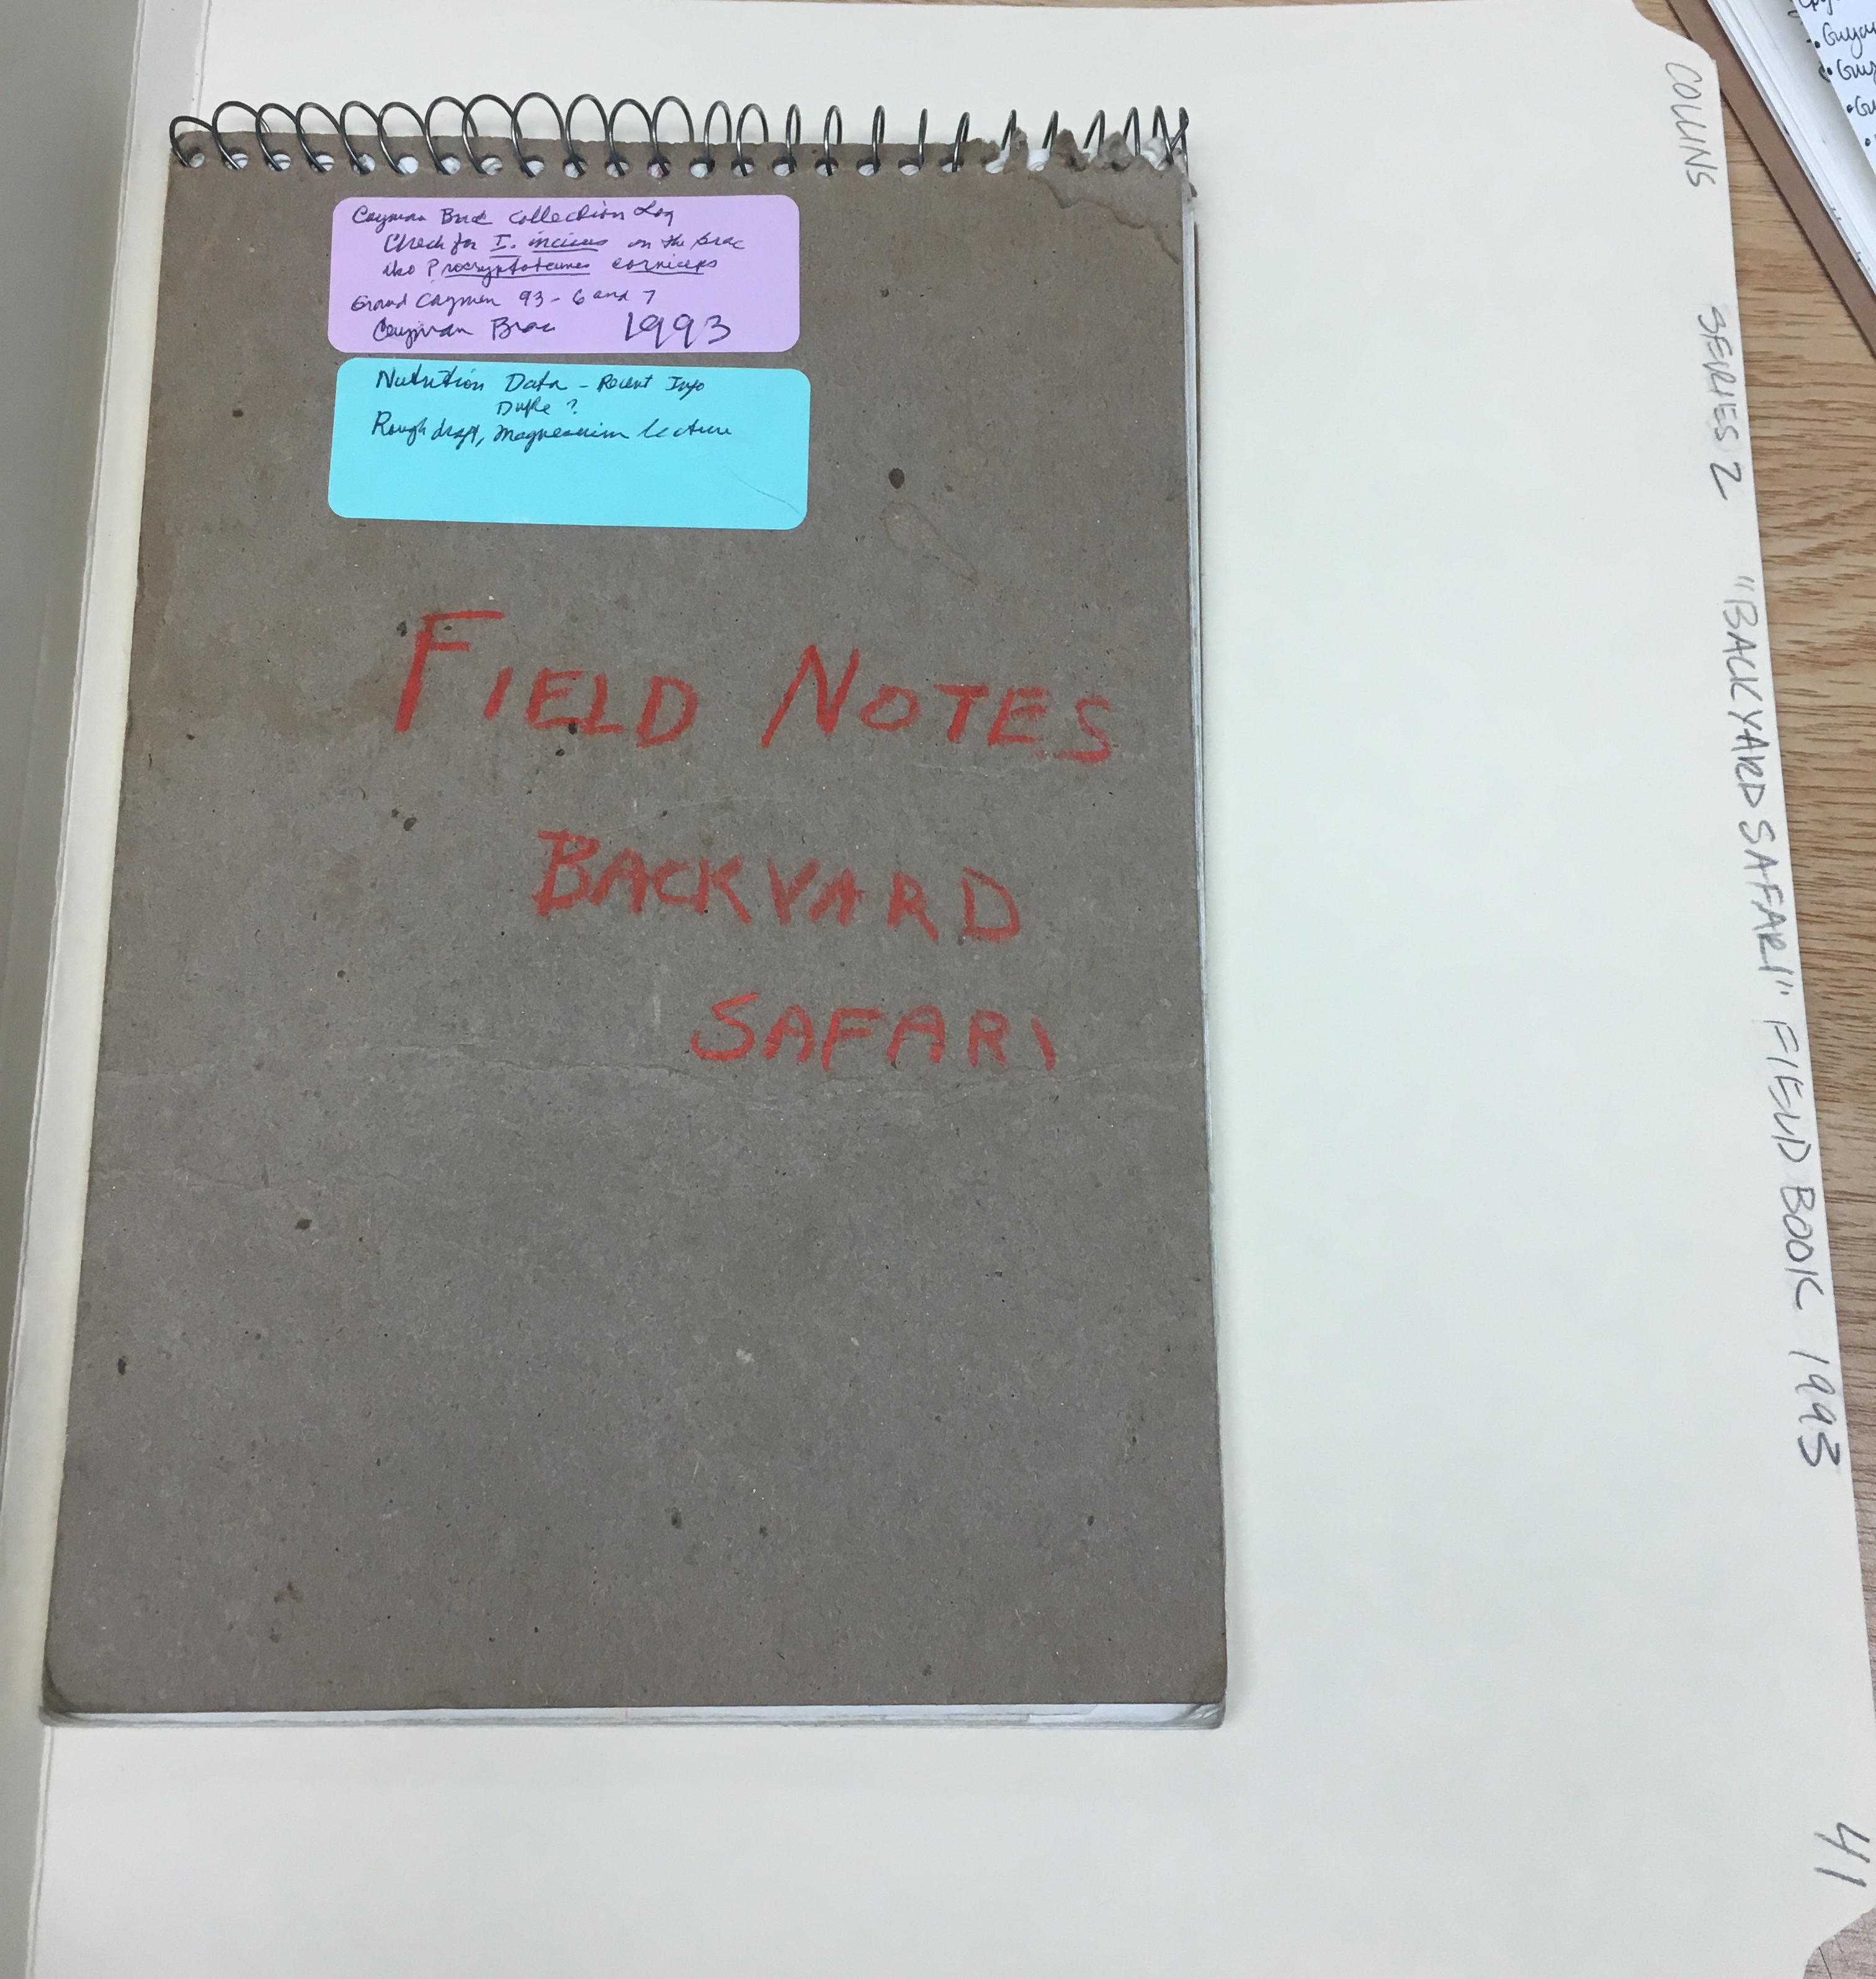 Cayman Brac Collection Log
Check for I. incisus on the brac
Also Procryptotermes corniceps
Grand Cayman 93-6 and 7
Cayman Brac 1993
Nutrition Data - Recent Info
Duke ?
Rough draft, Magnesium lecture
FIELD NOTES
BACKYARD
SAFARI
COLLINS SERIES 2 "BACKYARD SAFARI" FIELD BOOK 1993 41